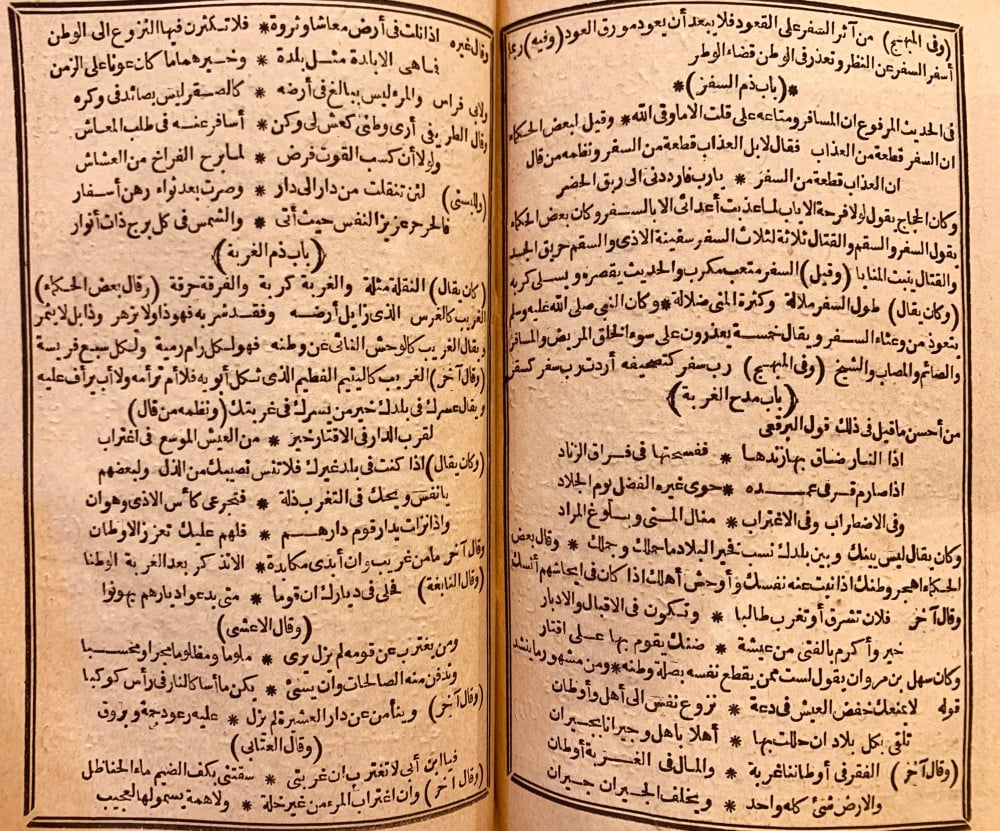 (وفى المبهج) من آثر السفر على القعود فلا يبعد أن يعود مورق العود (وفيه) ربما
أسفر السفر عن الظفر وتعذر فى الوطن قضاء الوطر
*(باب ذم السفر)*
فى الحديث المرفوع ان المسافر ومتاعه على قلت الاما وقى الله * وقيل لبعض الحكماء
ان السفر قطعة من العذاب فقال لا بل العذاب قطعة من السفر ونظمه من قال
ان العذاب قطعة من السفر * يارب فارددنى الى ريق الحضر
وكان الحجاج يقول لولا فرحة الاياب لما عذبت أعدائى الا بالسفر وكان بعض الحكماء
يقول السفر والسقم والقتال ثلاثة لثلاث السفر سفينة الاذى والسقم حريق الجسد
والقتال ينبت المنايا (وقيل) السفر متعب مكرب والحديث يقصره ويسلى كربه
(وكان يقال) طول السفر ملالة وكثرة المنى ضلالة * وكان النبى صلى الله عليه وسلم
يتعوذ من وعثاء السفر ويقال خمسة يعذرون على سوء الخلق المريض والمسافر
والصائم والمصاب والشيخ (وفى المبهج) رب سفر كتصحيفه أردت رب سفر كسقر
(باب مدح الغربة)
من أحسن ماقيل فى ذلك قول البرقعى
اذا النار ضاق بها زندها * ففسحتها فى فراق الزناد
اذا صارم قر فى غمده * حوى غيره الفضل يوم الجلاد
وفى الاضطراب وفى الاغتراب * منال المنى وبلوغ المراد
وكان يقال ليس بينك وبين بلدك نسب فخير البلاد ما حملك وجملك * وقال بعض
الحكماء اهجر وطنك اذا نبت عنه نفسك وأوحش أهلك اذا كان فى ايحاشهم أنسك
وقال آخر فلان تشرق أو تغرب طالبا * وتكون فى الاقبال والادبار
خير وأكرم بالفتى من عيشة * ضنك يقوم بها على اقتار
وكان سهل بن مروان يقول لست ممن يقطع نفسه بصلة وطنه * ومن مشهور ما ينشد
قوله لا يمنعنك خفض العيش فى دعة * نزوع نفس الى أهل وأوطان
تلقى بكل بلاد ان حللت بها * أهلا بأهل وجيرانا بجيران
(وقال آخر) الفقر فى أوطاننا غربة * والمال فى الغربة أوطان
والارض شئ كله واحد * ويخلف الجيران جيران
وقال غيره اذا نلت فى أرض معاشا وثروة * فلا تكثرن فيها النزوع الى الوطن
فما هى الا بلدة مثل بلدة * وخيرهما ما كان عونا على الزمن
ولابى فراس والمرء ليس ببالغ فى أرضه * كالصقر ليس بصائد فى وكره
وقال الطريفى أرى وطنى كعش لى ولكن * أسافر عنه فى طلب المعاش
ولولا أن كسب القوت فرض * لما برح الفراخ من العشاش
(وللبستى) لئن تنقلت من دار الى دار * وصرت بعد ثواء رهن أسفار
فالحر حر عزيز النفس حيث أتى * والشمس فى كل برج ذات أنوار
(باب ذم الغربة)
(كان يقال) النقلة مثلة والغربة كربة والفرقة حرقة (وقال بعض الحكماء)
الغريب كالغرس الذى زايل أرضه وفقد شربه فهو ذاو لا يزهر وذابل لا يثمر
ويقال الغريب كالوحش النائى عن وطنه فهو لكل رام رمية ولكل سبع فريسة
(وقال آخر) الغريب كاليتيم الفطيم الذى ثكل أبويه فلا أم ترأمه ولا أب يرأف عليه
ويقال عسرك فى بلدك خير من يسرك فى غربتك (ونظمه من قال)
لقرب الدار فى الاقتار خير * من العيش الموسع فى اغتراب
(وكان يقال) اذا كنت فى بلد غيرك فلا تنس نصيبك من الذل ولبعضهم
يا نفس ويحك فى التغرب ذلة * فتجرعى كأس الاذى وهوان
واذا نزلت بدار قوم دارهم * فلهم عليك تعزز الاوطان
وقال آخر ما من غريب وان أبدى مكابرة * الا تذكر بعد الغربة الوطنا
(وقال النابغة) فحلى فى ديارك ان قوما * متى يدعوا ديارهم يهونوا
(وقال الاعشى)
ومن يغترب عن قومه لم يزل يرى * ملوما ومظلوما مجرا ومسحبا
وتدفن منه الصالحات وان يسئ * يكن ما أسا كالنار فى رأس كوكبا
(وقال آخر) وينأ من عن دار العشيرة لم يزل * عليه رعود جمة وبروق
(وقال العتابى)
فيا ابن أبى لا تغترب ان غربتى * سقتنى بكف الضيم ماء الحناظل
(وقال آخر) وان اغتراب المرء من غير خلة * ولا همة يسمو لها لعجيب